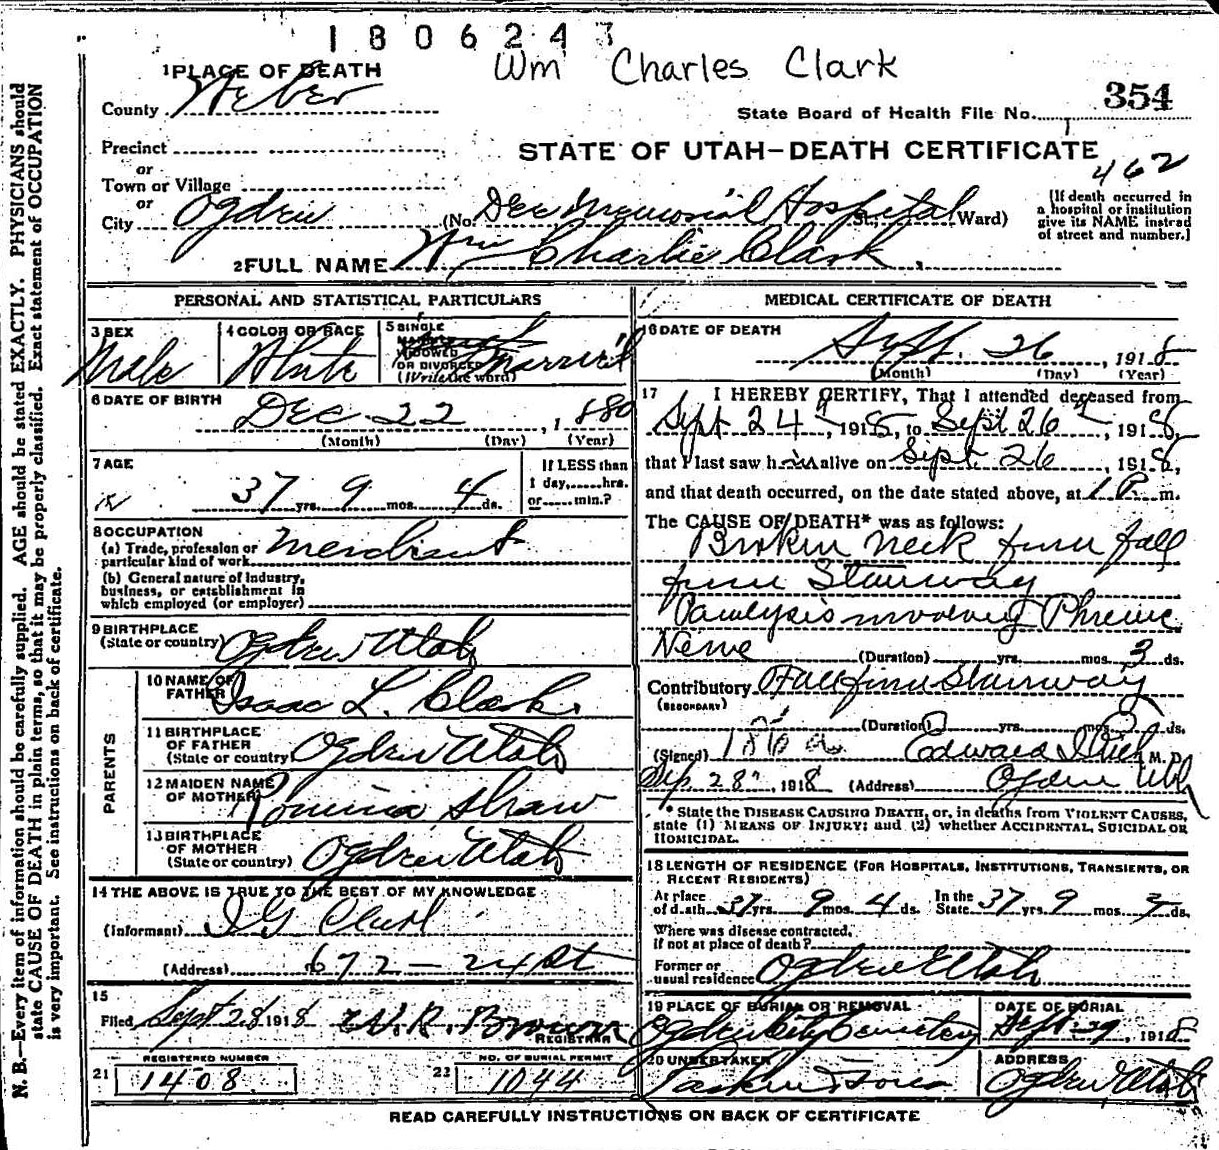 1806243
Wm Charles Clark
1 PLACE OF DEATH
County Weber
State Board of Health File No. 354
Precinct
or
STATE OF UTAH—DEATH CERTIFICATE
462
Town or Village
or
City Ogden (No. Dee Memorial Hospital St., Ward)
[If death occurred in
a hospital or institution
give its NAME instead
of street and number.]
2 FULL NAME Wm Charlie Clark
PERSONAL AND STATISTICAL PARTICULARS
3 SEX
Male
4 COLOR OR RACE
White
5 SINGLE
MARRIED
WIDOWED
OR DIVORCED
(Write the word)
Married
6 DATE OF BIRTH
Dec 22, 1880
(Month) (Day) (Year)
7 AGE
37 yrs. 9 mos. 4 ds.
If LESS than
1 day, hrs.
or min.?
8 OCCUPATION
(a) Trade, profession or
particular kind of work Merchant
(b) General nature of industry,
business, or establishment in
which employed (or employer)
9 BIRTHPLACE
(State or country) Ogden Utah
PARENTS
10 NAME OF
FATHER Isaac L. Clark
11 BIRTHPLACE
OF FATHER
(State or country) Ogden Utah
12 MAIDEN NAME
OF MOTHER Shaw
13 BIRTHPLACE
OF MOTHER
(State or country) Ogden Utah
14 THE ABOVE IS TRUE TO THE BEST OF MY KNOWLEDGE
(Informant) I G Clark
(Address) 672 — 24 St
15
Filed Sept 28 1918 W. R. Brown
REGISTRAR
REGISTERED NUMBER
21 1408
NO. OF BURIAL PERMIT
22 1044
MEDICAL CERTIFICATE OF DEATH
16 DATE OF DEATH
Sept. 26, 1918
(Month) (Day) (Year)
17 I HEREBY CERTIFY, That I attended deceased from
Sept 24, 1918, to Sept 26, 1918,
that I last saw him alive on Sept 26, 1918,
and that death occurred, on the date stated above, at 1 P. m.
The CAUSE OF DEATH* was as follows:
Broken neck from fall
from Stairway
Paralysis involving Phrenic
Nerve (Duration) yrs. mos. 3 ds.
Contributory Fall from Stairway
(SECONDARY)
(Duration) yrs. mos. ds.
(Signed) Edward M. D.
Sep. 28, 1918 (Address) Ogden Utah
* State the DISEASE CAUSING DEATH, or, in deaths from VIOLENT CAUSES,
state (1) MEANS OF INJURY; and (2) whether ACCIDENTAL, SUICIDAL OR
HOMICIDAL.
18 LENGTH OF RESIDENCE (FOR HOSPITALS, INSTITUTIONS, TRANSIENTS, OR
RECENT RESIDENTS)
At place
of death 37 yrs. 9 mos. 4 ds.
In the
State 37 yrs. 9 mos. ds.
Where was disease contracted,
if not at place of death?
Former or
usual residence Ogden Utah
19 PLACE OF BURIAL OR REMOVAL
Ogden City Cemetery
DATE OF BURIAL
Sept. 29, 1918
20 UNDERTAKER
ADDRESS
Ogden Utah
READ CAREFULLY INSTRUCTIONS ON BACK OF CERTIFICATE
N. B.—Every item of information should be carefully supplied. AGE should be stated EXACTLY. PHYSICIANS should
state CAUSE OF DEATH in plain terms, so that it may be properly classified. Exact statement of OCCUPATION
is very important. See instructions on back of certificate.